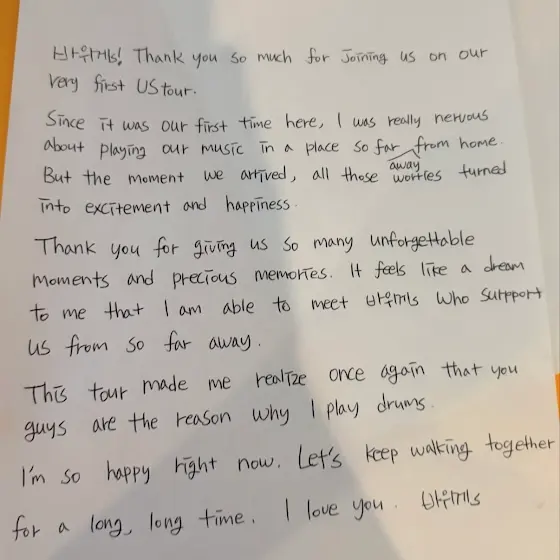 바위게s! Thank you so much for joining us on our
very first US tour.
Since it was our first time here, I was really nervous
about playing our music in a place so far away from home.
But the moment we arrived, all those worries turned
into excitement and happiness.
Thank you for giving us so many unforgettable
moments and precious memories. It feels like a dream
to me that I am able to meet 바위게s who surpport
us from so far away.
This tour made me realize once again that you
guys are the reason why I play drums.
I'm so happy right now. Let's keep walking together
for a long, long time. I love you. 바위게s